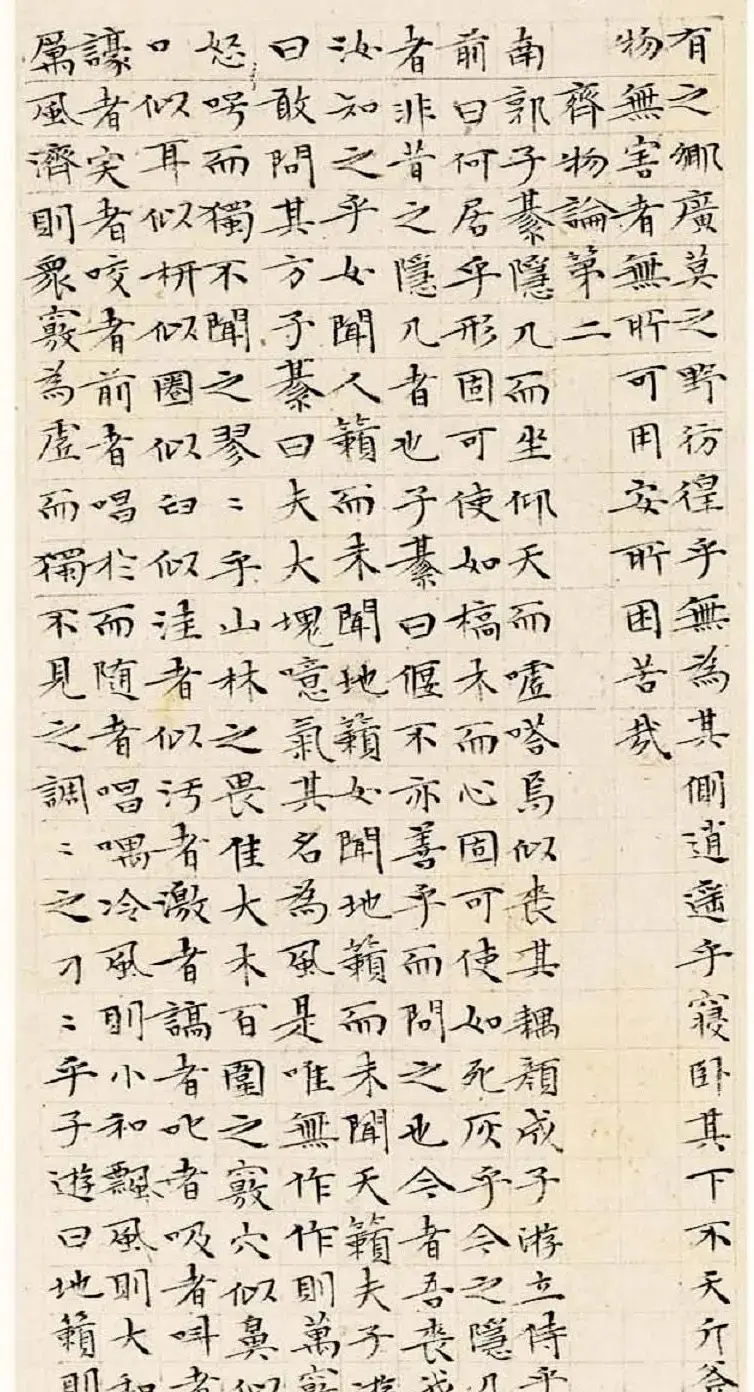 有之鄉廣莫之野彷徨乎無為其側逍遥乎寢卧其下不夭斤斧
物無害者無所可用安所困苦哉
齊物論第二
南郭子綦隱几而坐仰天而嘘嗒焉似喪其耦顏成子游立侍乎
前曰何居乎形固可使如槁木而心固可使如死灰乎今之隱几
者非昔之隱几者也子綦曰偃不亦善乎而問之也今者吾喪我
汝知之乎女聞人籟而未聞地籟女聞地籟而未聞天籟夫子游
曰敢問其方子綦曰夫大塊噫氣其名為風是唯無作作則萬竅
怒呺而獨不聞之翏〻乎山林之畏佳大木百圍之竅穴似鼻似
口似耳似枅似圈似臼似洼者似污者激者謞者叱者吸者叫者
譹者宎者咬者前者唱於而随者唱喁冷風則小和飄風則大和
厲風濟則眾竅為虛而獨不見之調〻之刁〻乎子遊曰地籟則